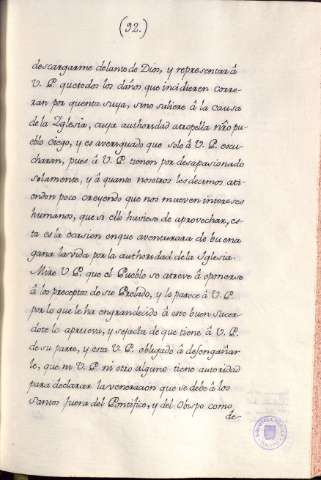 (32.)
descargarme delante de Dios, y representar â
V. P. que todos los daños que incidieren corre-
ran por quenta suya, sino saliere â la causa
de la Yglesia, cuya authoridad atropella nr̃o pu-
eblo ciego, y es averiguado que solo â V. P. escu-
charan, pues â V. P. tienen por desapasionado
solamente, y â quanto nosotros les decimos ati-
enden poco creyendo que nos mueven intereses
humanos, que si ello huviera de aprovechar, es-
ta es la ocasion en que aventurara de buena
gana la vida por la authoridad de la Yglesia.
Mire V. P. que el Pueblo se atreve â oponerse
â los preceptos de su Prelado, y le parece â V. P.
por lo que le ha engrandecido â este buen Sacer-
dote lo aprueva, y se jacta de que tiene â V. P.
de su parte, y està V. P. obligado â desengañar-
lo, que ni V. P. ni otro alguno tiene autoridad
para declarar la veneracion que se debe â los
Santos fuera del Pontifice, y del Obispo como
de-